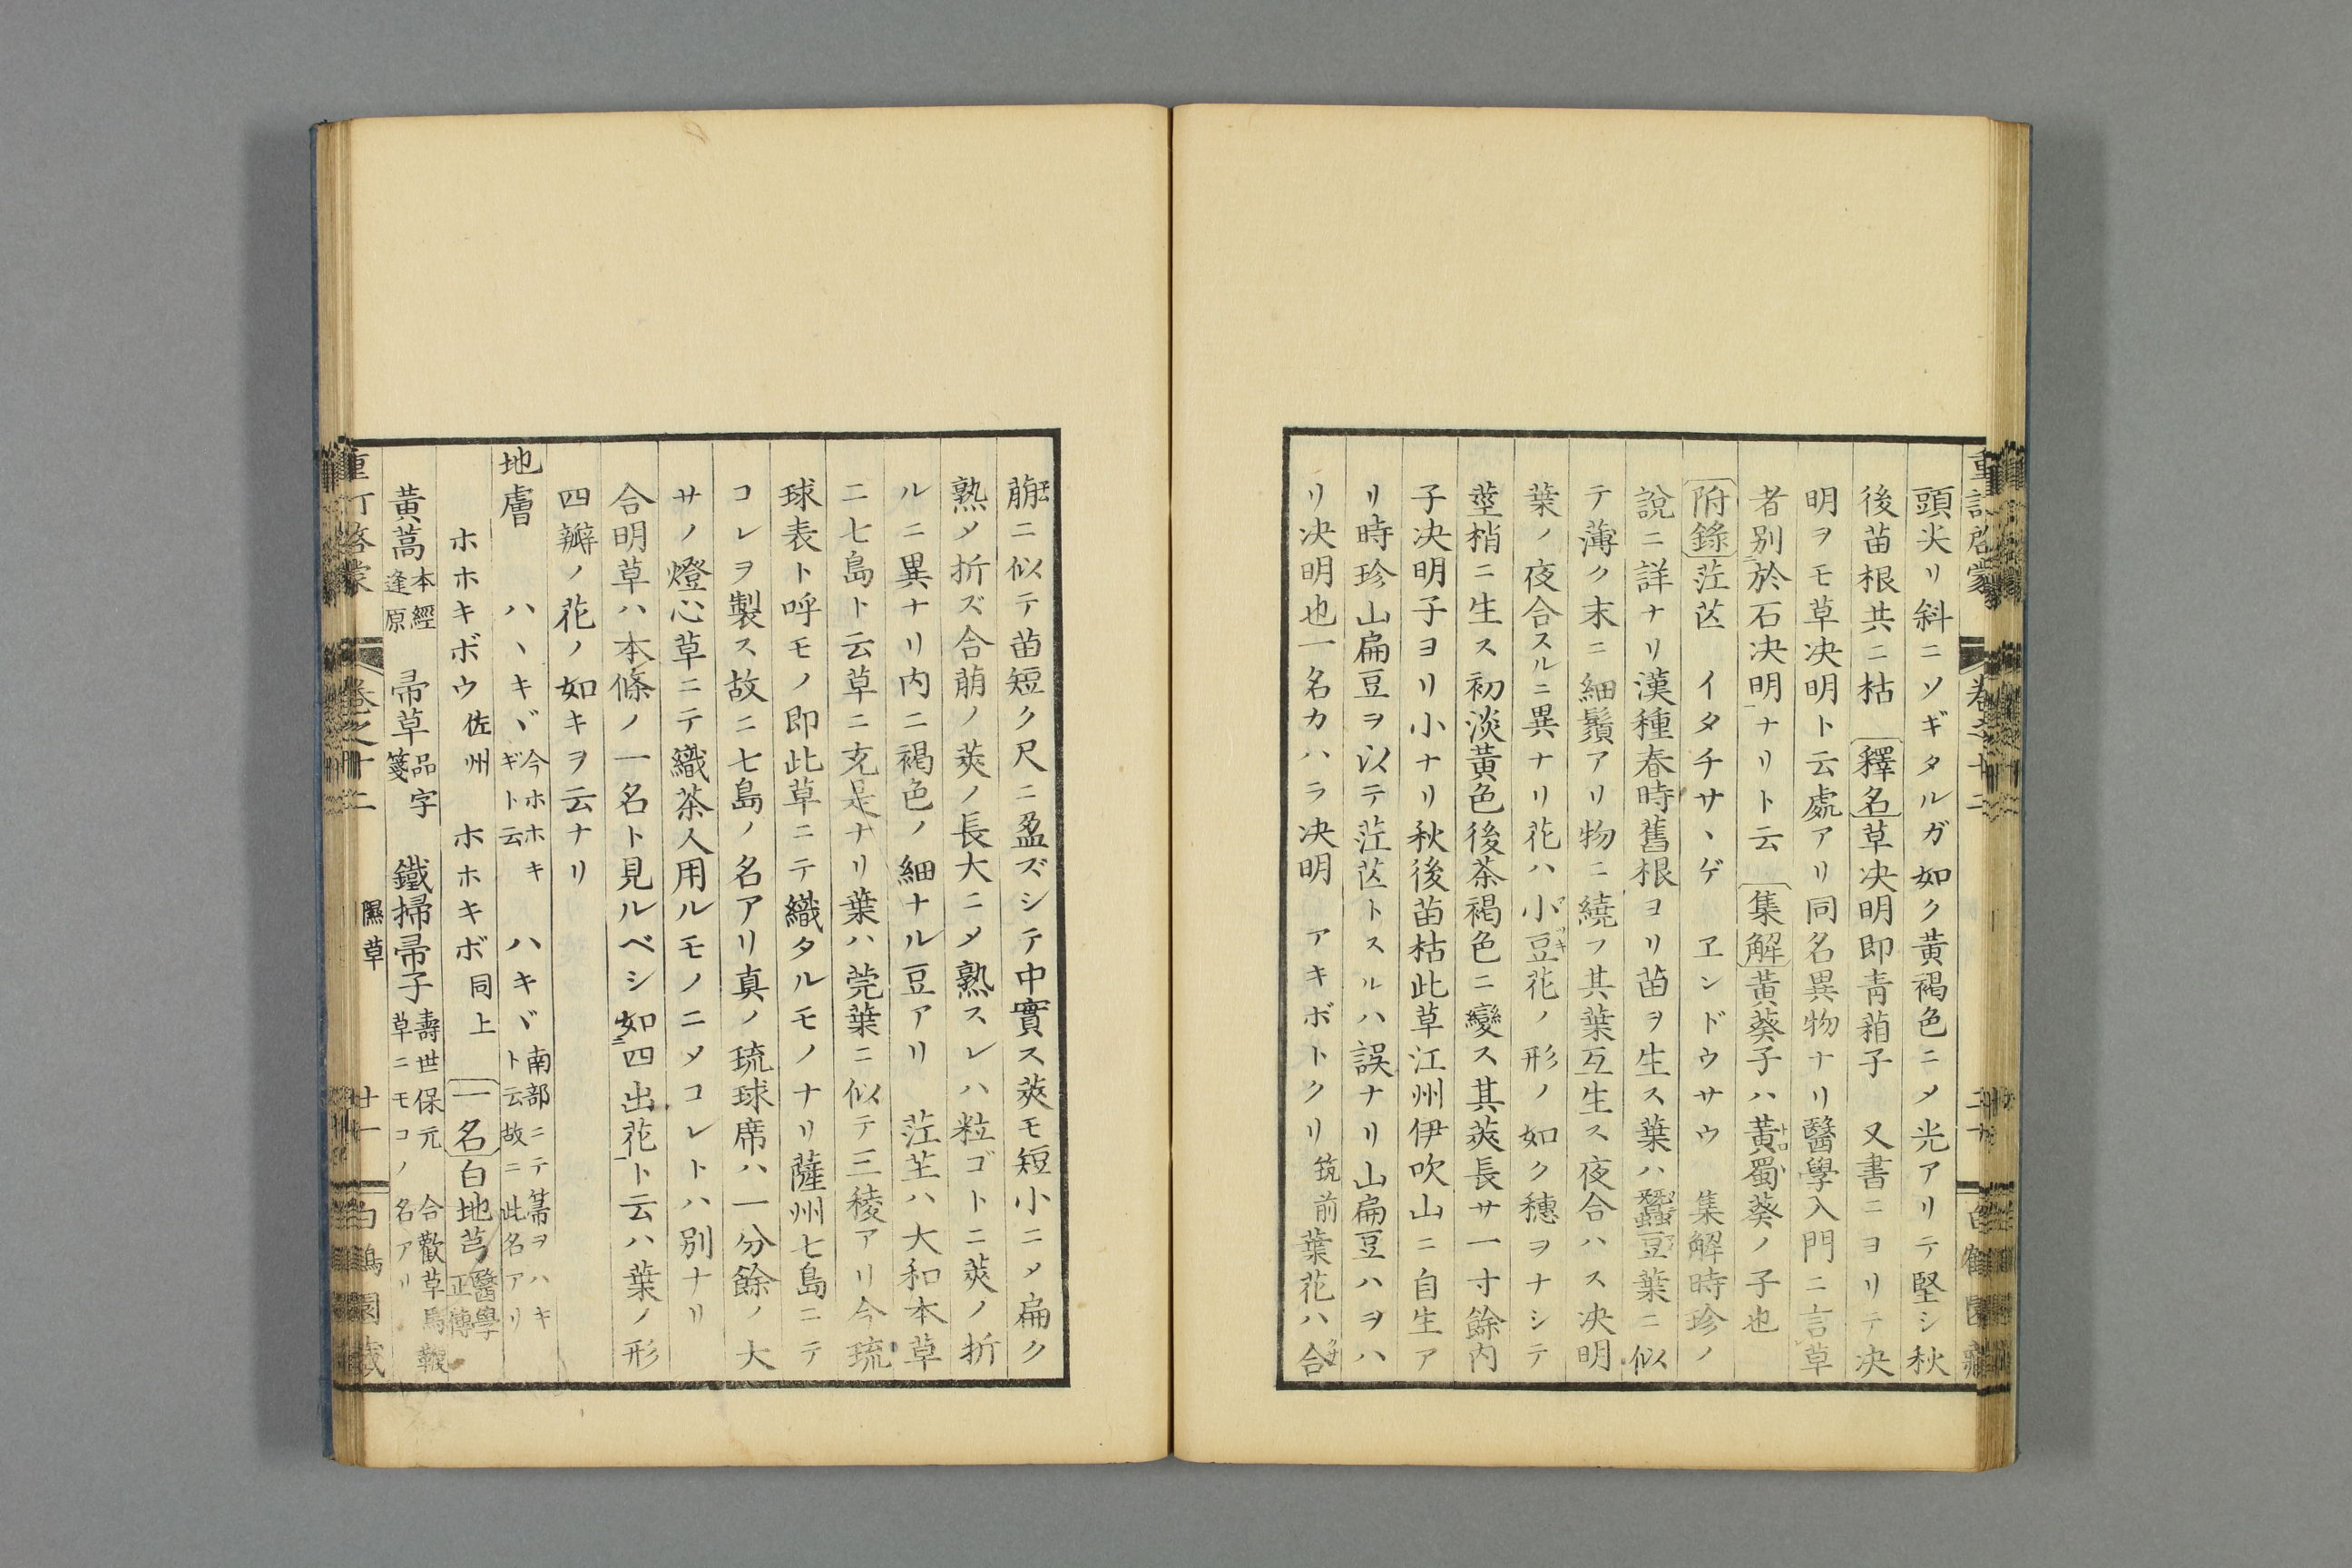 頭尖リ斜ニソギタルガ如ク黄褐色ニメ光アリテ堅シ秋
後苗根共ニ枯 釋名草决明即青葙子 又書ニヨリテ决
明ヲモ草决明ト云處アリ同名異物ナリ醫學入門ニ言草
者別於石决明ナリト云 集解黄葵子ハ黄蜀葵ノ子也
附錄茳芒 イタチサヽゲ ヱンドウサウ 集解時珍ノ
說ニ詳ナリ漢種春時舊根ヨリ苗ヲ生ス葉ハ蠶豆葉ニ似
テ薄ク末ニ細鬚アリ物ニ繞フ其葉互生ス夜合ハス决明
葉ノ夜合スルニ異ナリ花ハ小豆花ノ形ノ如ク穗ヲナシテ
莖梢ニ生ス初淡黄色後茶褐色ニ變ス其莢長サ一寸餘内
子决明子ヨリ小ナリ秋後苗枯此草江州伊吹山ニ自生ア
リ時珍山扁豆ヲ以テ茳芒トスルハ誤ナリ山扁豆ハヲハ
リ决明也一名カハラ决明 アキボトクリ筑前葉花ハ合
萠ニ似テ苗短ク尺ニ盈ズシテ中實ス莢モ短小ニメ扁ク
熟メ折ズ合萠ノ莢ノ長大ニメ熟スレハ粒ゴトニ莢ノ折
ルニ異ナリ内ニ褐色ノ細ナル豆アリ 茳芏ハ大和本草
ニ七島ト云草ニ充是ナリ葉ハ莞葉ニ似テ三稜アリ今琉
球表ト呼モノ即此草ニテ織タルモノナリ薩州七島ニテ
コレヲ製ス故ニ七島ノ名アリ真ノ琉球席ハ一分餘ノ大
サノ燈心草ニテ織茶人用ルモノニメコレトハ別ナリ
合明草ハ本條ノ一名ト見ルベシ如四出花ト云ハ葉ノ形
四瓣ノ花ノ如キヲ云ナリ
地膚 ハヽキヾ今ホホキギト云 ハキヾ南部ニテ箒ヲハキト云故ニ此名アリ
ホホキボウ佐州 ホホキボ同上 一名白地芎醫學正傳
黄蒿本經逢原 帚草品字箋 鐵掃帚子壽世保元 合歡草ニモコノ名アリ